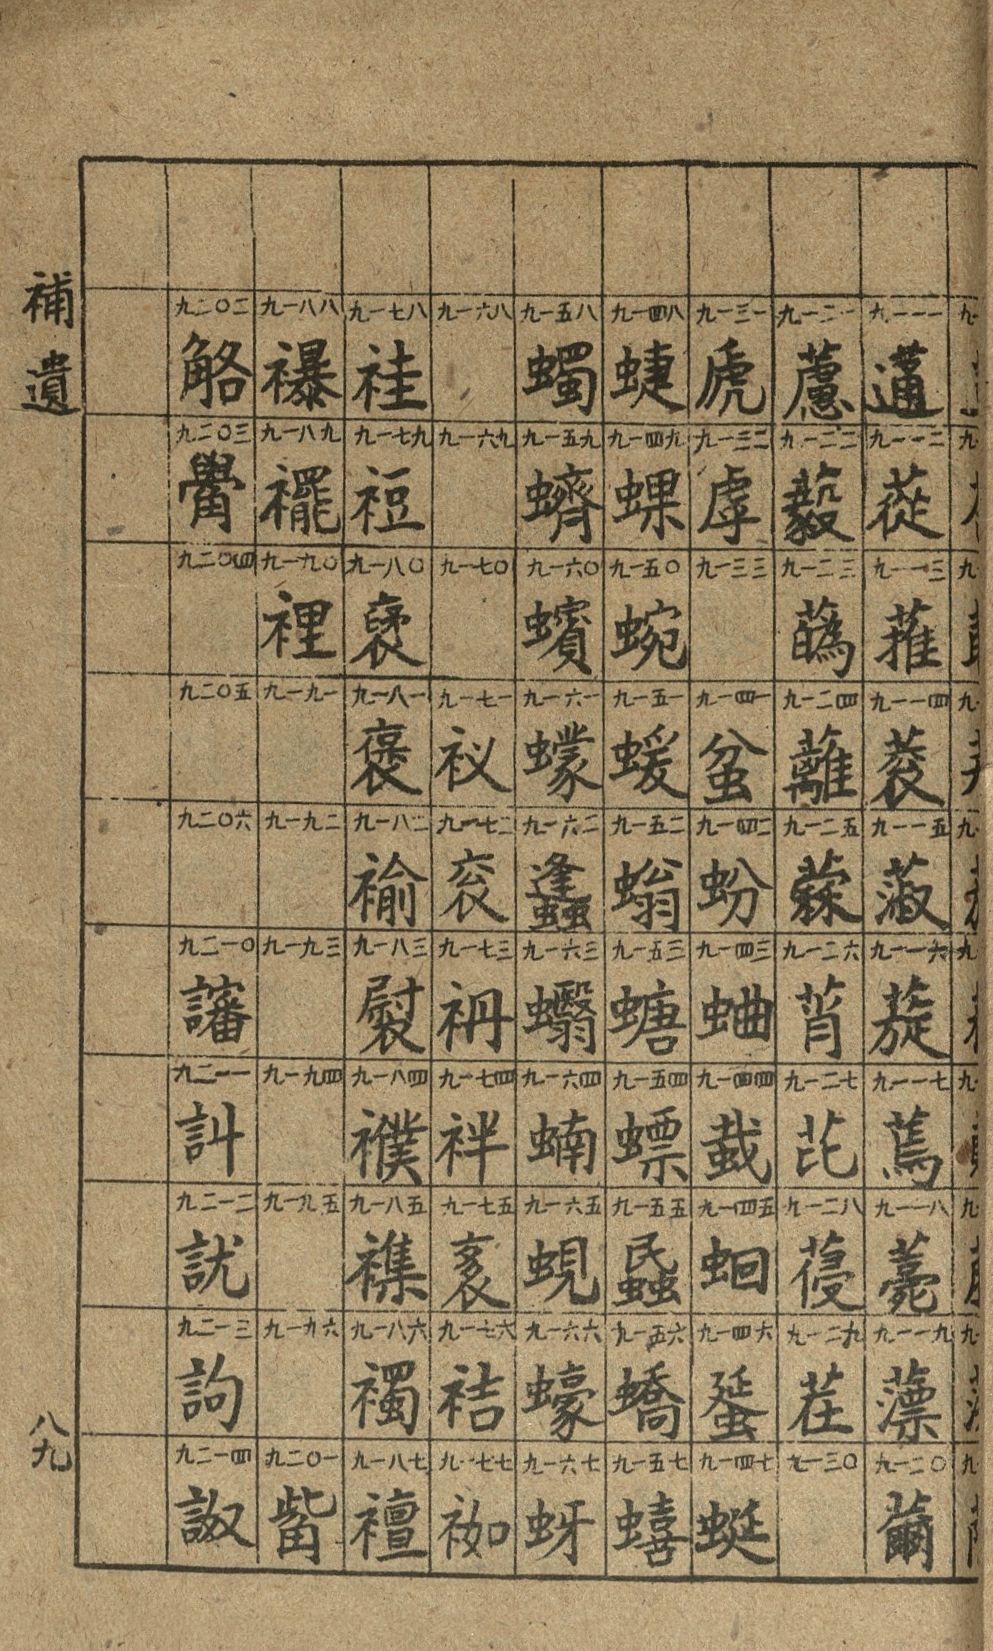 補遺
九一一一
九一一二 蓯
九一一三 蓷
九一一四 蔉
九一一五 蔋
九一一六 蔙
九一一七 蔫
九一一八 薨
九一一九 薸
九一二〇 薾
九一二一 藘
九一二二 藙
九一二三 蘤
九一二四 蘺
九一二五
九一二六 莦
九一二七 芘
九一二八 葠
九一二九 茬
九一三〇
九一三一 虒
九一三二 虖
九一三三
九一四一 蚠
九一四二 蚡
九一四三 蛐
九一四四 蛓
九一四五 蛔
九一四六 蜑
九一四七 蜓
九一四八 蜨
九一四九 蜾
九一五〇 蜿
九一五一 蝯
九一五二 螉
九一五三 螗
九一五四 螵
九一五五 蟁
九一五六 蟜
九一五七 蟢
九一五八 蠋
九一五九 蠐
九一六〇 蠙
九一六一 蠓
九一六二 蠭
九一六三 蠮
九一六四 蝻
九一六五 蜆
九一六六 蠔
九一六七 蚜
九一六八
九一六九
九一七〇
九一七一
九一七二 袞
九一七三 袡
九一七四 袢
九一七五
九一七六 袺
九一七七 袽
九一七八 袿
九一七九 裋
九一八〇 裦
九一八一 褒
九一八二 褕
九一八三 褽
九一八四 襆
九一八五 襍
九一八六 襡
九一八七 襢
九一八八 襮
九一八九 襬
九一九〇 裡
九一九一
九一九二
九一九三
九一九四
九一九五
九一九六
九二〇一 觜
九二〇二 觡
九二〇三 觷
九二〇四
九二〇五
九二〇六
九二一〇 讅
九二一一 訆
九二一二 訧
九二一三 訽
九二一四
八九